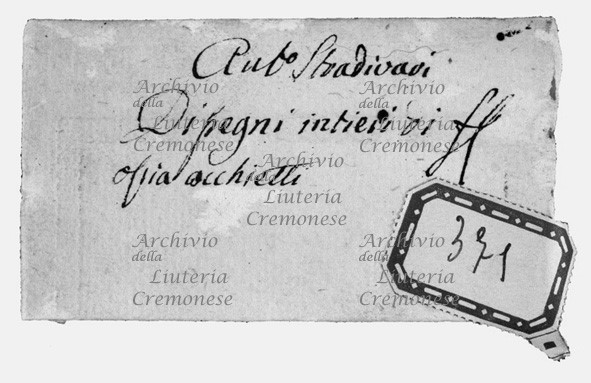 Ant.º Stradivari
Disegni intieri di ff
ossia occhietti
371
Archivio
della
Liuteria
Cremonese
Archivio
della
Liuteria
Cremonese
Archivio
della
Liuteria
Cremonese
Archivio
della
Liuteria
Cremonese
Archivio
della
Liuteria
Cremonese